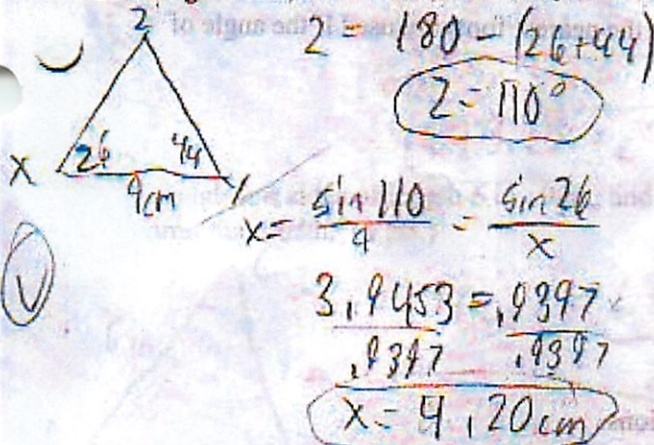 Z
26
44
X
Y
9cm
Z = 180 - (26+44)
Z = 110°
x = sin 110 / 9 = sin 26 / x
3.9453 = .9397
.9397 .9397
x = 4.20 cm